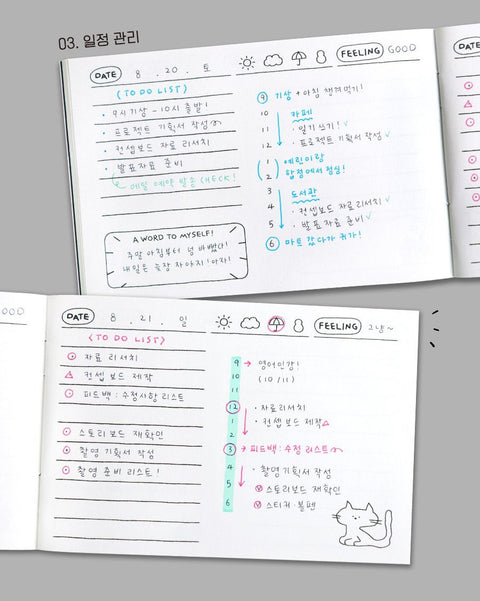 03. 일정 관리
DATE 8 . 20 . 토 FEELING GOOD
DATE
<TO DO LIST>
• 9시기상 - 10시 출발!
• 프로젝트 기획서 작성
• 컨셉보드 자료 리서치
• 발표자료 준비
메일 예약 발송 CHECK!
A WORD TO MYSELF!
주말 아침부터 넘 바빴다!
내일은 늦잠 자야지! 아자!
9 기상 + 아침 챙겨먹기!
10 카페
11 • 일기쓰기! ✓
12 • 프로젝트 기획서 작성 ✓
1 예린이랑
2 합정에서 점심!
3 도서관
4 • 컨셉보드 자료리서치 ✓
5 • 발표자료 준비 ✓
6 마트 갔다가 귀가!
OOD
DATE 8 . 21 . 일 FEELING 그냥~
<TO DO LIST>
자료 리서치
컨셉 보드 제작
피드백 : 수정사항 리스트
스토리보드 재확인
촬영기획서 작성
촬영 준비 리스트!
9 → 영어인강!
10 (10/11)
11
12 • 자료리서치
1 • 컨셉 보드 제작
2
3 → 피드백 : 수정 리스트
4 • 촬영기획서 작성
5 스토리보드 재확인
6 스티커 · 볼펜